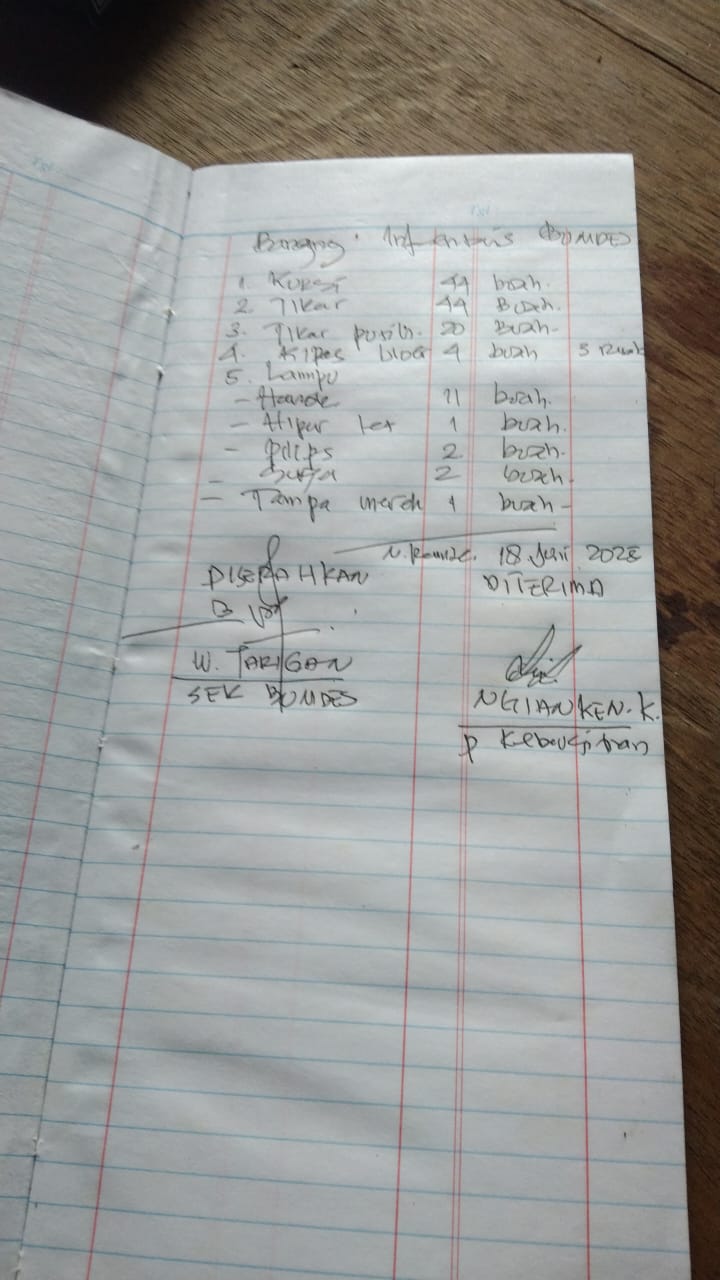 Barang² Infentaris BUMDES
1. Kursi 44 buah.
2. Tikar 44 Buah.
3. Tikar putih. 20 Buah-
4. Kipas 4 buah 3 rusak
5. Lampu
- Hande 11 buah.
- 1 buah.
- Pilips 2 buah.
- Surya 2 buah-
- Tampa merek 1 buah-
18 Juni 2025
DISERAHKAN DITERIMA
W. TARIGAN
SEK BUMDES
NGIANKEN.K.
P